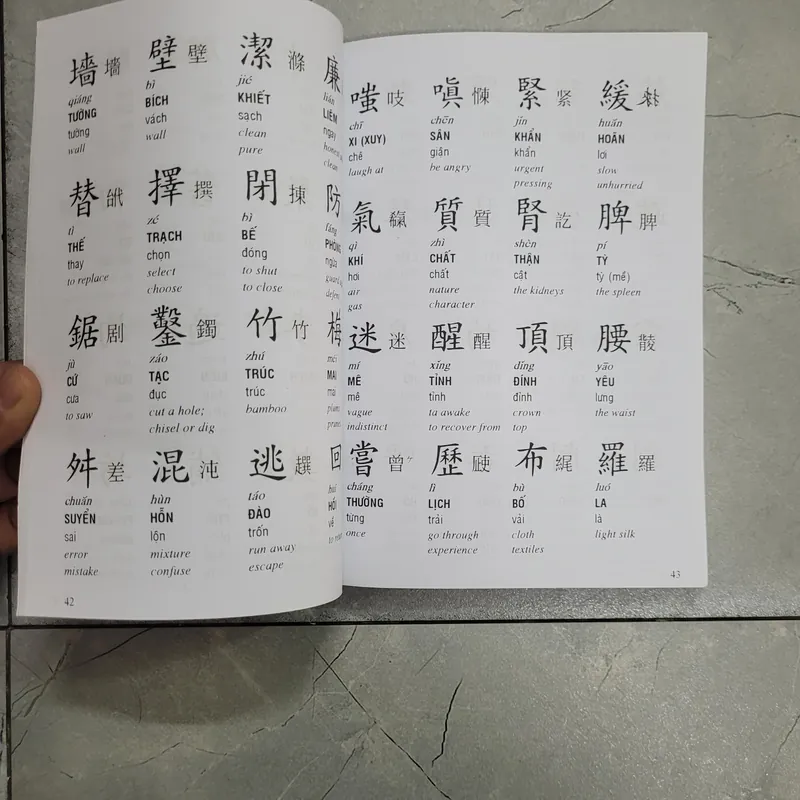 墻 墻 壁 壁 潔 滌 廉
qiáng bì jié lián
TƯỜNG BÍCH KHIẾT LIÊM
tường vách sạch ngay
wall wall clean
pure clean
替 擇 撰 閉 揀 防
tì zé bì fáng
THẾ TRẠCH BẾ PHÒNG
thay chọn đóng ngừa
to replace select to shut
choose to close
鋸 剧 鑿 鐲 竹 竹 梅
jù záo zhú méi
CỨ TẠC TRÚC MAI
cưa đục trúc mai
to saw cut a hole; bamboo
chisel or dig
舛 差 混 沌 逃 趩 回
chuǎn hùn táo huí
SUYỄN HỖN ĐÀO HỒI
sai lộn trốn về
error mixture run away
mistake confuse escape
42
嗤 吱 嗔 悚 緊 紧 緩
chī chēn jǐn huǎn
XI (XUY) SÂN KHẨN HOÃN
chê giận khẩn lơi
laugh at be angry urgent slow
pressing unhurried
氣 質 質 腎 訖 脾 脾
qì zhì shèn pí
KHÍ CHẤT THẬN TỲ
hơi chất cật tỳ (mề)
air nature the kidneys the spleen
gas character
迷 迷 醒 醒 頂 頂 腰
mí xǐng dǐng yāo
MÊ TỈNH ĐỈNH YÊU
mê tỉnh đỉnh lưng
vague ta awake crown the waist
indistinct to recover from top
嘗 曾 歷 布 羅 羅
cháng lì bù luó
THƯỜNG LỊCH BỐ LA
từng trải vải là
once go through cloth light silk
experience textiles
43